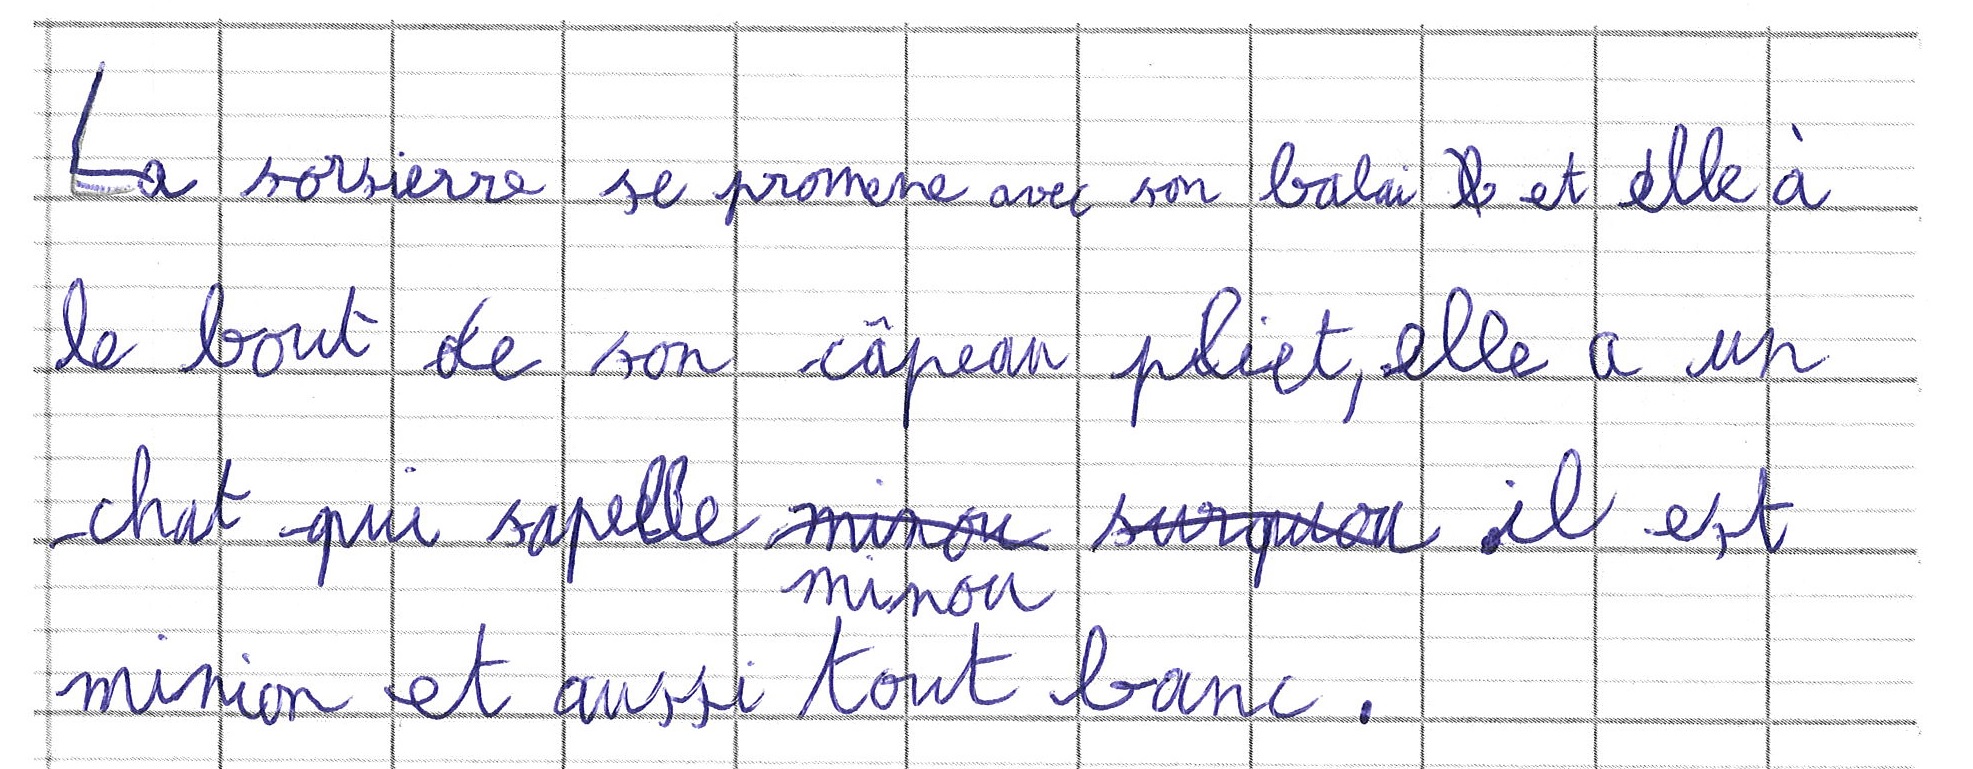 La sorsierre se promene avec son balai et elle à
le bout de son câpeau pliet, elle a un
chat qui sapelle minou surquou . il est
minou
minion et aussi tout banc .